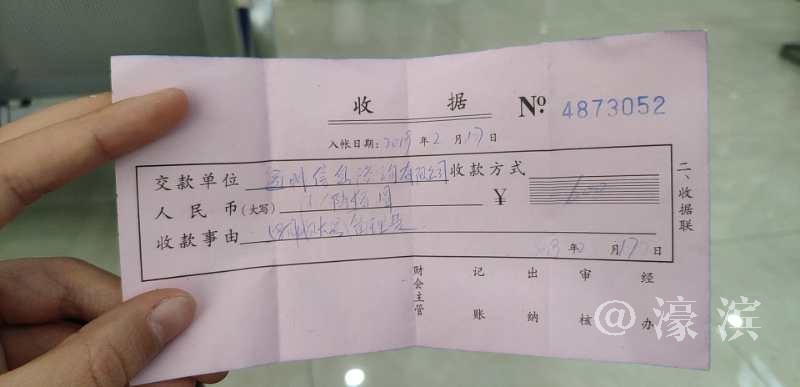 收据 № 4873052
入帐日期:2019年2月17日
交款单位 信息咨询有限公司 收款方式
人民币(大写) ¥ 600
收款事由
年 月17日
二、收据联
财会主管 记账 出纳 审核 经办
@濠滨